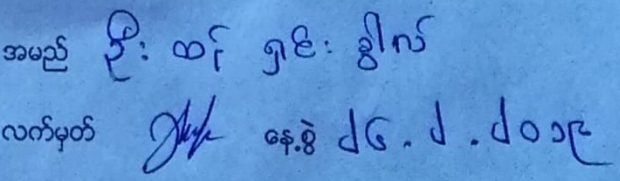 အမည် ဦး ထန် ရှင်း ခွါလ်
လက်မှတ် နေ့စွဲ ၂၆.၂.၂၀၁၉